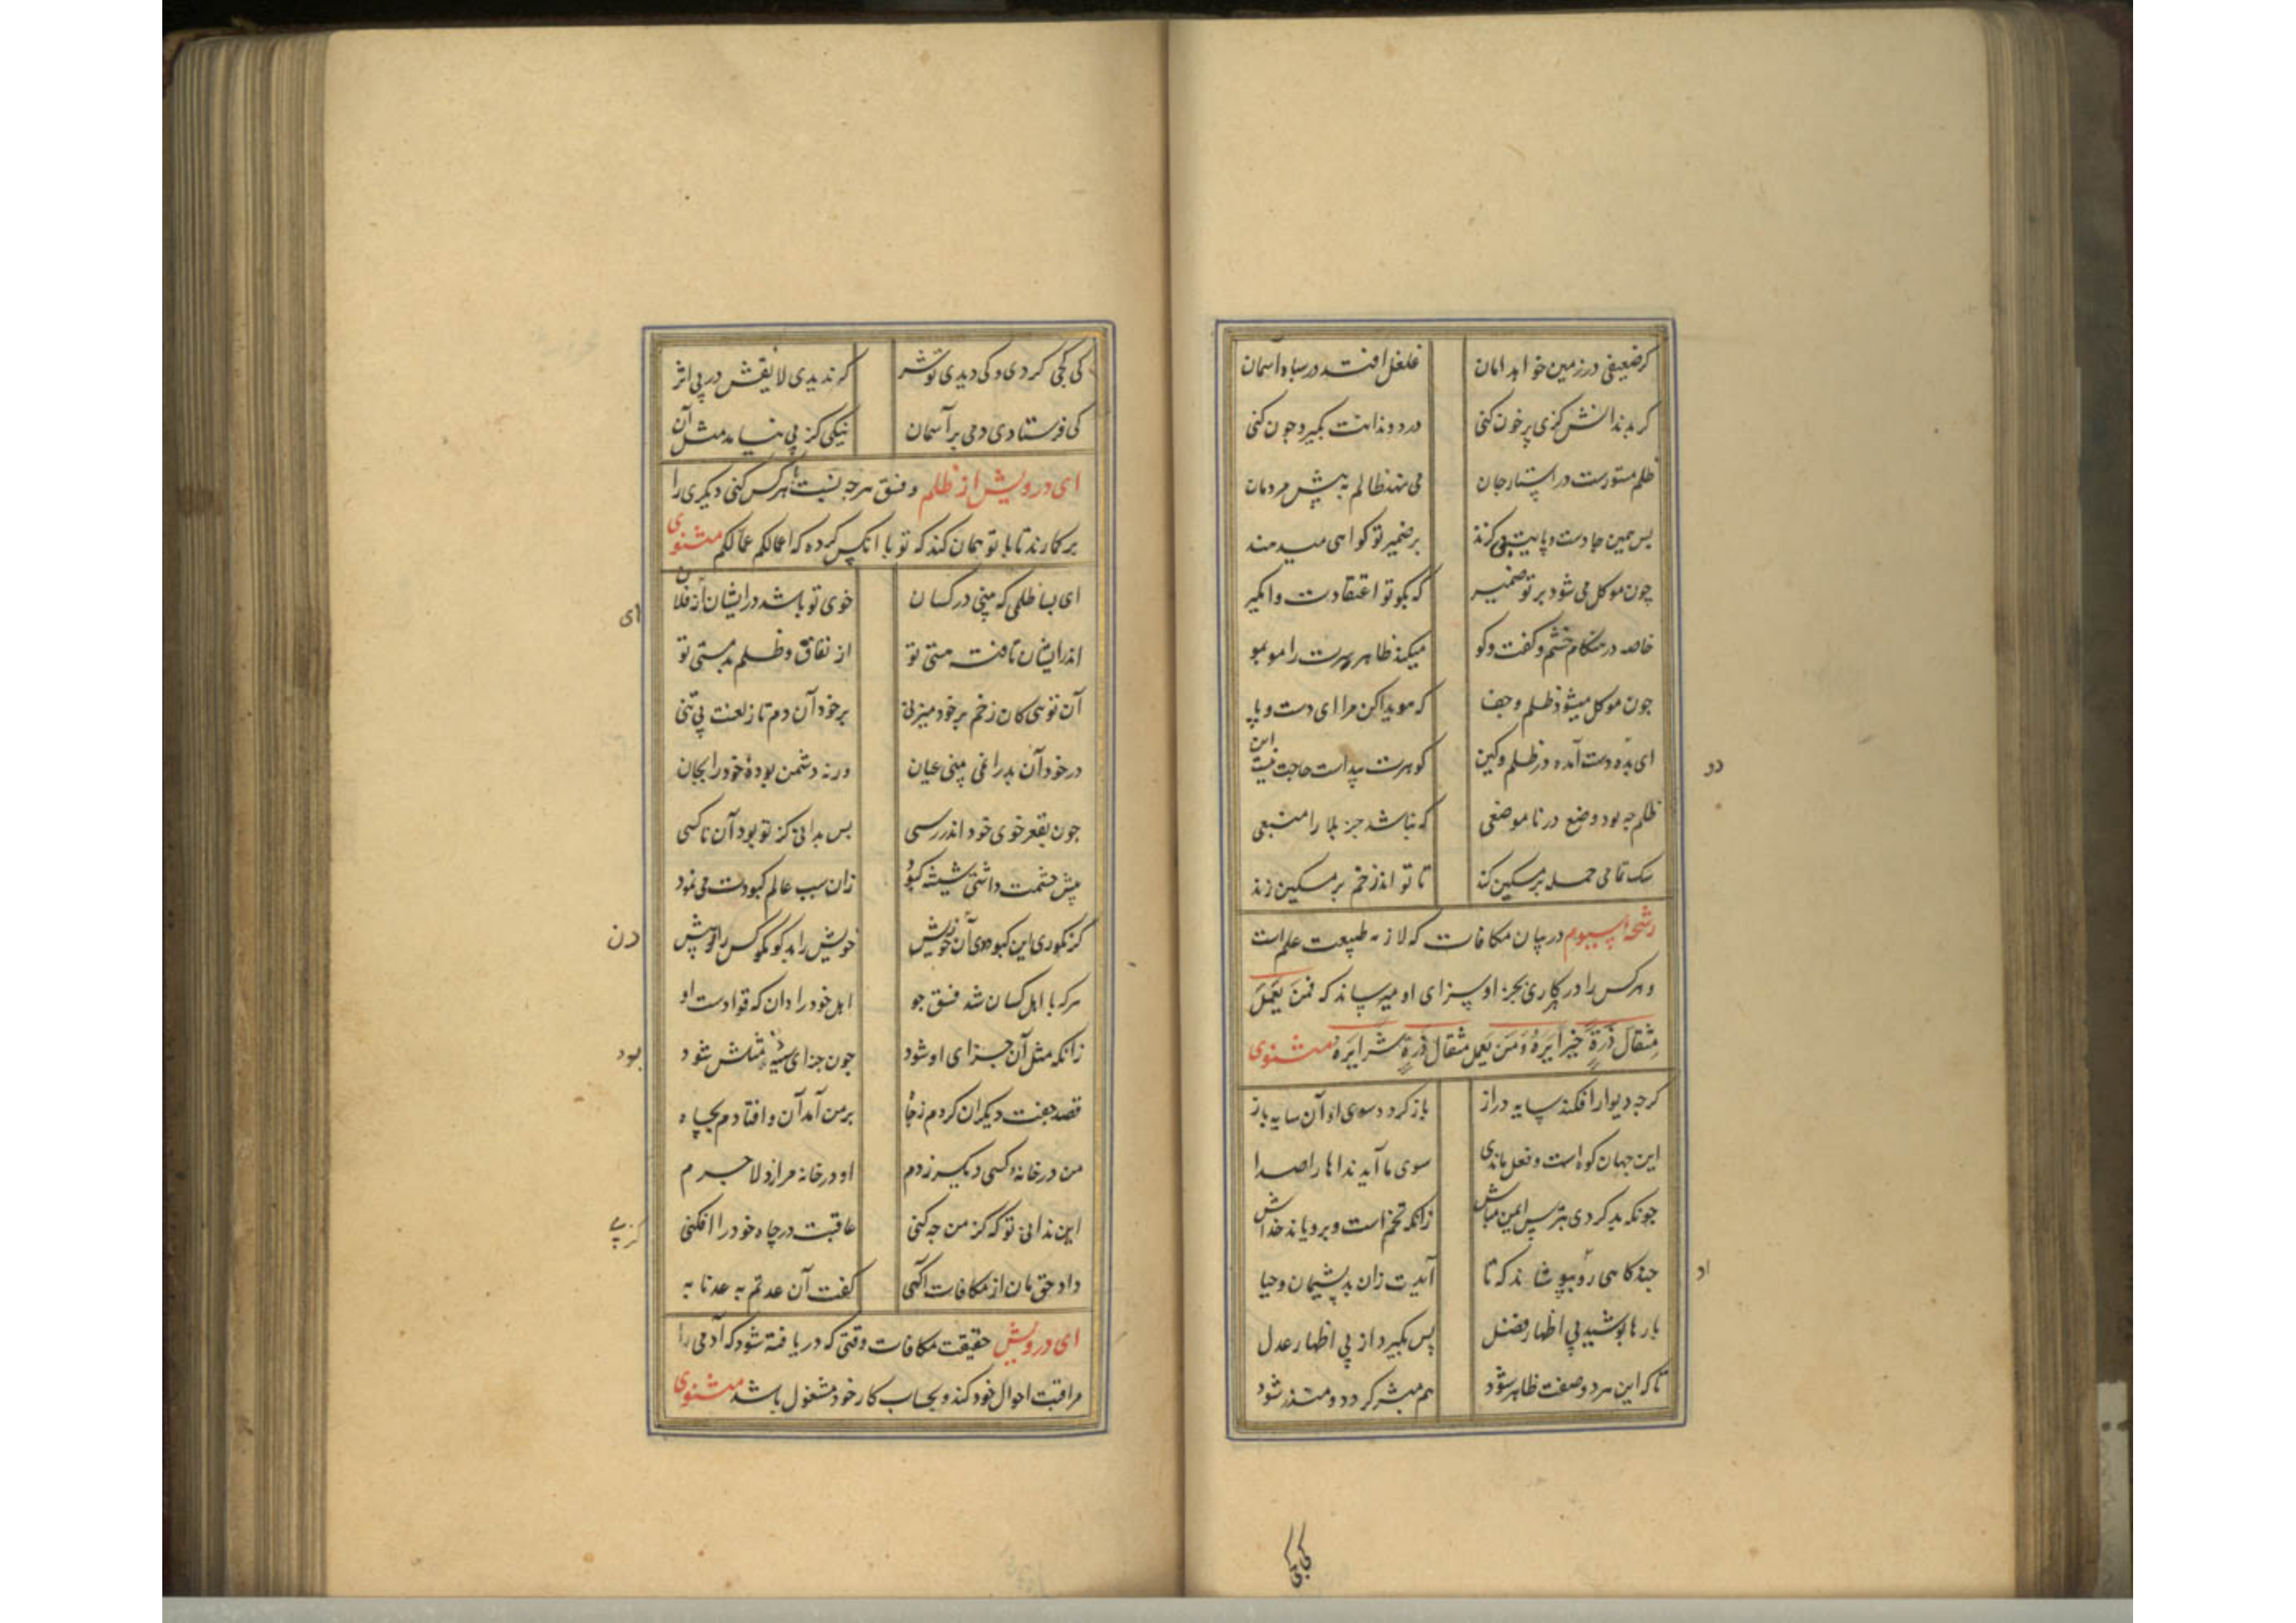 کر ضعیفی در زمین خواهد امان غلغل افتد در سپاه آسمان
کر بدندانش کزی پر خون کنی درد دندانت بکیرد جون کنی
ظلم مستورست در اسرار جان می نهد ظالم به پیش مردمان
پس همین جا دست و پایت بی کزند بر ضمیر تو کواهی میدهند
چون موکل می شود بر تو ضمیر که بکو تو اعتقادت وا مکیر
خاصه در هنکام خشم و کفت و کو میکند ظاهر سرت را مو بمو
جون موکل میشود ظلم و جفا که هویدا کن مرا ای دست و پا
ای بده دست آمده در ظلم و کین کوهرت پیداست حاجت نیست این
دو
ظلم جه بود وضع در ناموضعی که نباشد جز بلا را منبعی
سک تمامی حمله بر مسکین کند تا تو اند زخم بر مسکین زند
رشحه سیوم در بیان مکافات که لازمه طبیعت علم است
و هر کس را در هر کاری بجزا و سزای او میرساند که فمن یعمل
مثقال ذرة خیرا یره و من یعمل مثقال ذرة شرا یره مثنوی
کرجه دیوار افکند سایه دراز باز کردد سوی او آن سایه باز
این جهان کوه است و فعل ما ندی سوی ما آید نداها را صدا
جونکه بد کردی بترس ایمن مباش زانکه تخم است و برویاند خداش
جند کاهی رو بپوشاند که تا آیدت زان بد پشیمان و حیا
اد
بارها پوشید پی اظهار فضل پس بکیرد از پی اظهار عدل
تا که این هر دو صفت ظاهر شود هم مبشر کردد و منذر شود
کی کجی
کی کجی کردی و کی دیدی تو شر که ندیدی لایقش در پی اثر
کی فرستادی دمی بر آسمان نیکی کز پی نیامد مثل آن
ای درویش از ظلم و فسق هرجه نسبت بهر کس کنی دیکری را
بر کارند تا با تو همان کند که تو با انکس کرده که اعمالکم عمالکم مثنوی
ای بسا ظلمی که بینی در کسان خوی تو باشد در ایشان از فلان
ای
اندر ایشان تافته هستی تو از نفاق و ظلم و بد مستی تو
آن توئی کان زخم بر خود میزنی بر خود آن دم تار لعنت می تنی
در خود آن بد را نمی بینی عیان ورنه دشمن بودهٔ خود را بجان
جون بقعر خوی خود اندر رسی بس بدانی کز تو بود آن ناکسی
پیش جشمت داشتی شیشه کبود زان سبب عالم کبودت می نمود
کر نکوری این کبودی دان ز خویش خویش را بد کو مکو کس را تو بیش
دن
هر که با اهل کسان شد فسق جو اهل خود را دان که قوادست او
زانکه مثل آن جزای او شود جون جزای سیئه مثلش شود
بود
قصد جفت دیکران کردم ز جاه بر من آمد آن و افتادم بچاه
من در خانهٔ کسی دیکر زدم او در خانه مرا زد لاجرم
این ندانی تو که کز من جه کنی عاقبت در چاه خود را افکنی
کز پی
داد حق مان از مکافات آکهی کفت آن عدتم به عدنا به
ای درویش حقیقت مکافات وقتی که دریافته شود که آدمی را
مراقبت احوال خود کند و بحساب کار خود مشغول باشد مثنوی